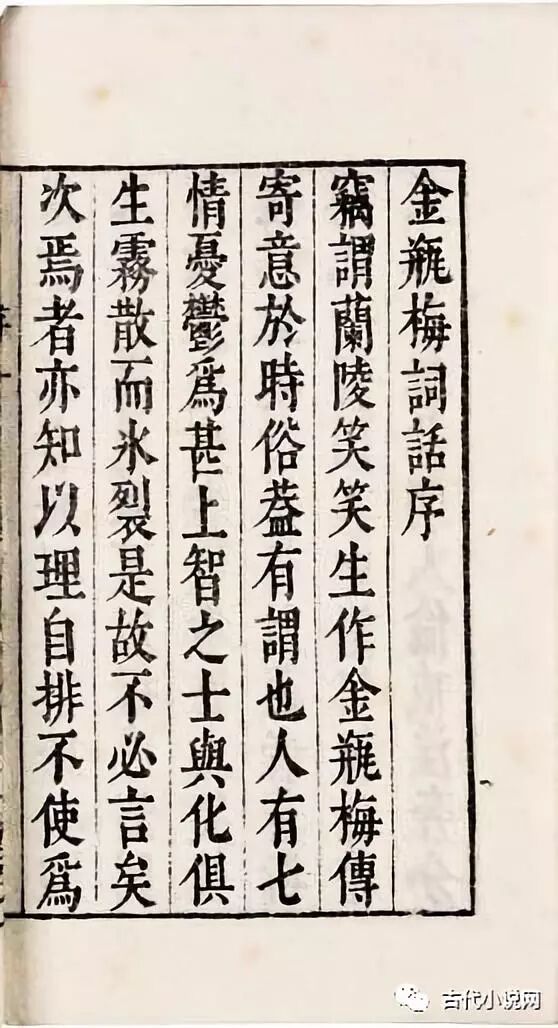 金瓶梅詞話序
竊謂蘭陵笑笑生作金瓶梅傳
寄意於時俗葢有謂也人有七
情憂鬱爲甚上智之士與化俱
生霧散而氷裂是故不必言矣
次焉者亦知以理自排不使爲
古代小说网